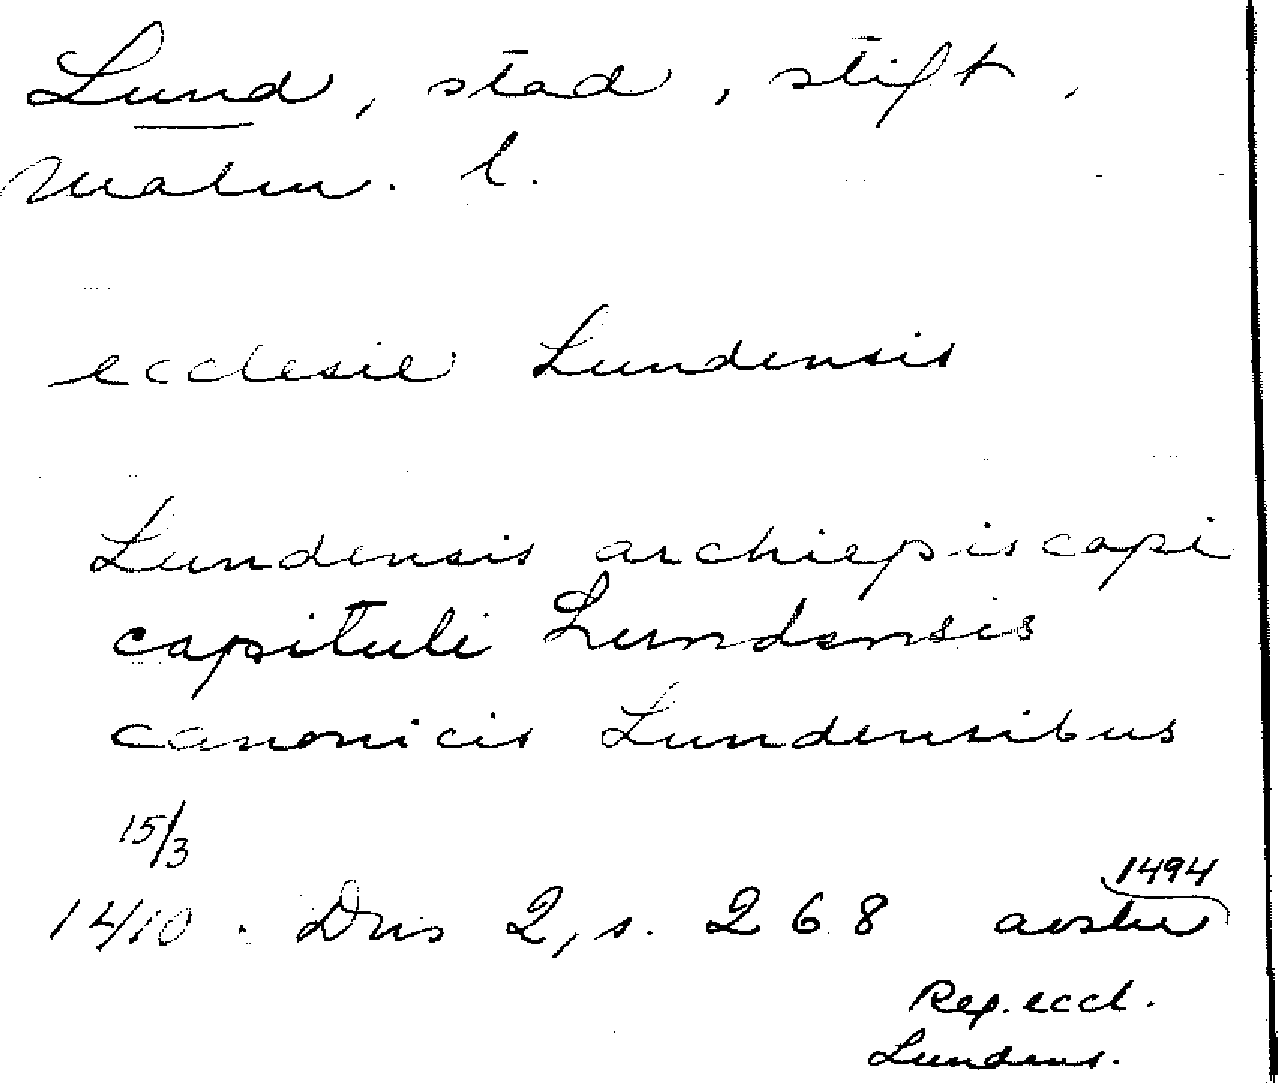 Lund, stad, stift,
Malm. l.
ecclesie Lundensis
Lundensis archiepiscopi
capituli Lundensis
canonicis Lundensibus
15/3
1410. Dns 2, s. 268 avskr
1494
Rep. eccl.
Lundens.